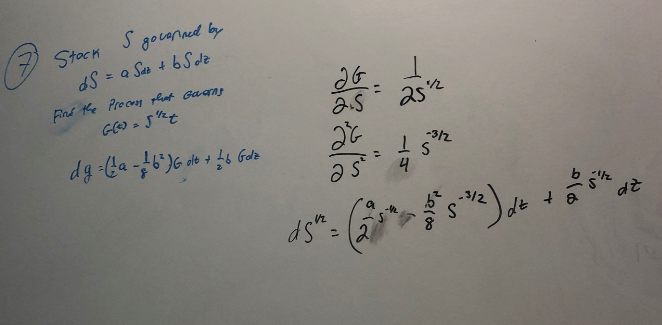 7 Stock S governed by
dS = a Sdt + b S dz
Find the Process that Governs
G(t) = S^{1/2} t
dg = (\frac{1}{2}a - \frac{1}{8}b^2) G dt + \frac{1}{2} b G dz
\frac{∂G}{∂S} = \frac{1}{2S^{1/2}}
\frac{∂^2 G}{∂ S^2} = \frac{1}{4} S^{-3/2}
dS^{1/2} = (\frac{a}{2} S^{-1/2} - \frac{b^2}{8} S^{-3/2}) dt + \frac{b}{2} S^{-1/2} dz